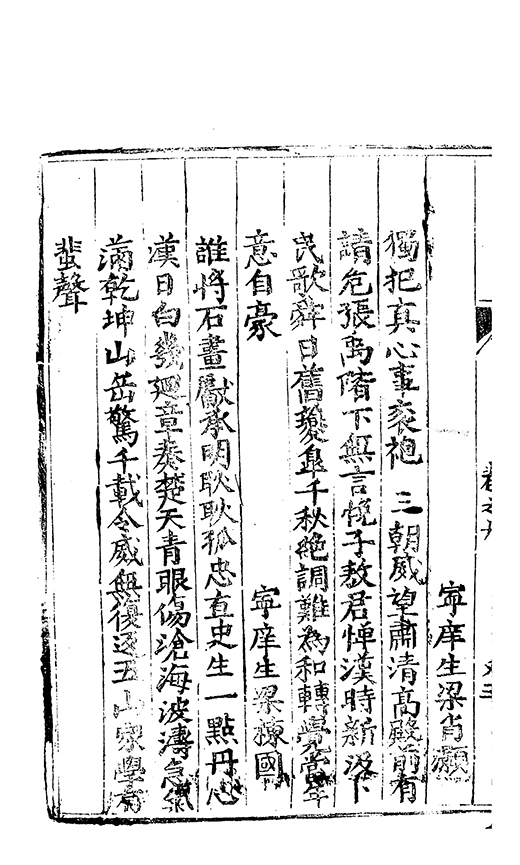 寧庠生梁肖灝
獨把真心事袞袍三朝威望肅清高殿前有
請危張禹階下無言愧子敖君憚漢時新汲下
民歌舜日舊夔皐千秋絕調難為和轉覺當年
意自豪
寧庠生梁棟國
誰將石畫獻承明耿耿孤忠直史生一點丹心
漢日白幾廻章奏楚天青眼傷滄海波濤急氣
滿乾坤山岳驚千載令威無復逐五山家學有
蜚聲
卷之